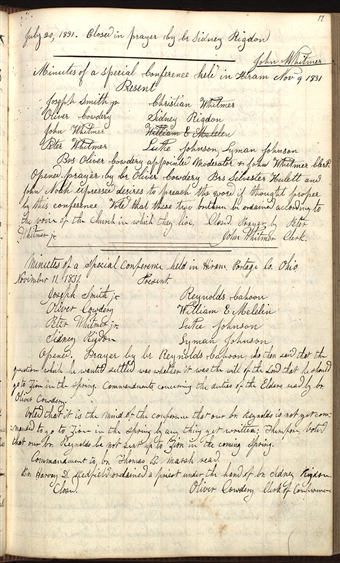 July 20, 1831. Closed in prayer by br Sidney Rigdon
John Whitmer
Minutes of a Special Conference held in Hiram Nov 9 1831
Present
Joseph Smith jr. Christian Whitmer
Oliver Cowdery Sidney Rigdon
John Whitmer William E Mclelen
Peter Whitmer Luke Johnson, Lyman Johnson
Br Oliver Cowdery appointed Moderator & John Whitmer Clerk
Opened prayer by br Oliver Cowdery Brs Silvester Hulett and
John Noah expressed desires to preach the word if thought proper
by this conference. Vote that these two brethren be ordained according to
the voice of the Church in which they live. Closed Prayer by Peter
Whitmer jr.
John Whitmer Clerk.
Minutes of a Special Conference held in Hiram Portage Co. Ohio
November 11, 1831. Present
Joseph Smith jr. Reynolds Cahoon
Oliver Cowdery William E Mclelen
Peter Whitmer jr. Luke Johnson
Sidney Rigdon Lyman Johnson
Opened, Prayer by br Reynolds Cahoon, he then said that the
question which he wanted settled was whether it was the will of the Lord that he should
go to Zion in the Spring. Commandments concerning the duties of the Elders read by br
Oliver Cowdery.
Voted that it is the mind of the conference that our br Reynolds is not yet com-
manded to go to Zion in the Spring by any thing yet written; Thereupon voted
that our br. Reynolds be not sent up to Zion in the coming Spring.
Commandment to br Thomas B. Marsh read.
Br. Harvey G. Redfield ordained a priest under the hand of br Sidney Rigdon
Closed. Oliver Cowdery Clerk of Conference